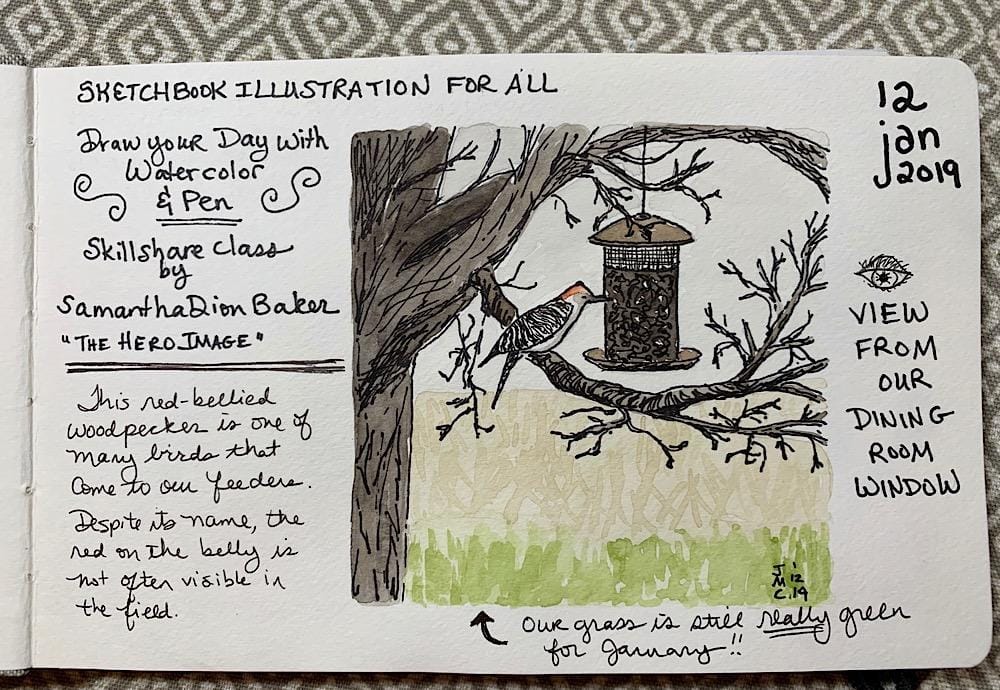 SKETCHBOOK ILLUSTRATION FOR ALL
Draw your Day with
Watercolor
& Pen
Skillshare Class
by
Samantha Dion Baker
"THE HERO IMAGE"
This red-bellied
woodpecker is one of
many birds that
come to our feeders.
Despite its name, the
red on the belly is
not often visible in
the field.
12
jan
2019
VIEW
FROM
OUR
DINING
ROOM
WINDOW
J '
M 12
C. 19
Our grass is still really green
for January!!